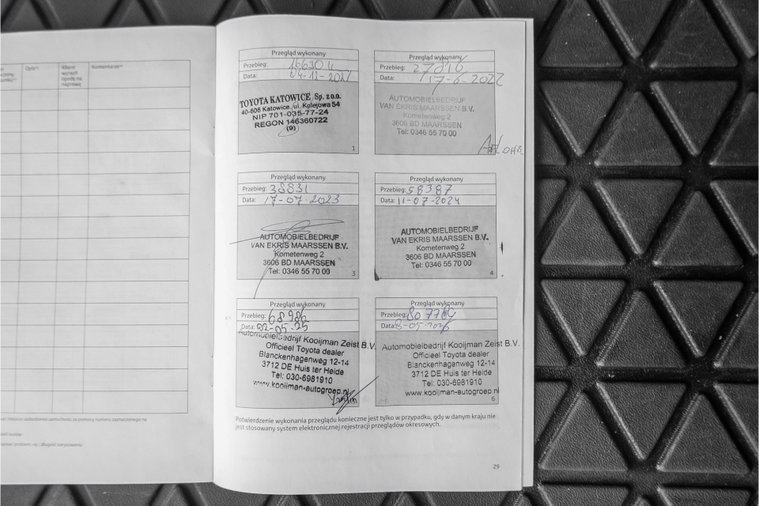 Opis
Klient
wyraził
zgodę na
naprawę
Komentarze
Przegląd wykonany
Przebieg:
Data: 04-11-2021
TOYOTA KATOWICE Sp. z o.o.
40-606 Katowice, ul. Kolejowa 54
NIP 701-035-77-24
REGON 146360722
(9)
1
Przegląd wykonany
Przebieg: 27816
Data: 17-6-2022
AUTOMOBIELBEDRIJF
VAN EKRIS MAARSSEN B.V.
Kometenweg 2
3606 BD MAARSSEN
Tel: 0346 55 70 00
Przegląd wykonany
Przebieg: 38831
Data: 17-07-2023
AUTOMOBIELBEDRIJF
VAN EKRIS MAARSSEN B.V.
Kometenweg 2
3606 BD MAARSSEN
Tel: 0346 55 70 00
3
Przegląd wykonany
Przebieg: 58387
Data: 11-07-2024
AUTOMOBIELBEDRIJF
VAN EKRIS MAARSSEN B.V.
Kometenweg 2
3606 BD MAARSSEN
Tel: 0346 55 70 00
4
Przegląd wykonany
Przebieg: 68986
Data: 02-05-25
Automobielbedrijf Kooijman Zeist B.V.
Officieel Toyota dealer
Blanckenhagenweg 12-14
3712 DE Huis ter Heide
Tel: 030-6981910
www.kooijman-autogroep.nl
Przegląd wykonany
Przebieg:
Data:
Automobielbedrijf Kooijman Zeist B.V.
Officieel Toyota dealer
Blanckenhagenweg 12-14
3712 DE Huis ter Heide
Tel: 030-6981910
www.kooijman-autogroep.nl
6
Potwierdzenie wykonania przeglądu konieczne jest tylko w przypadku, gdy w danym kraju nie
jest stosowany system elektronicznej rejestracji przeglądów okresowych.
29